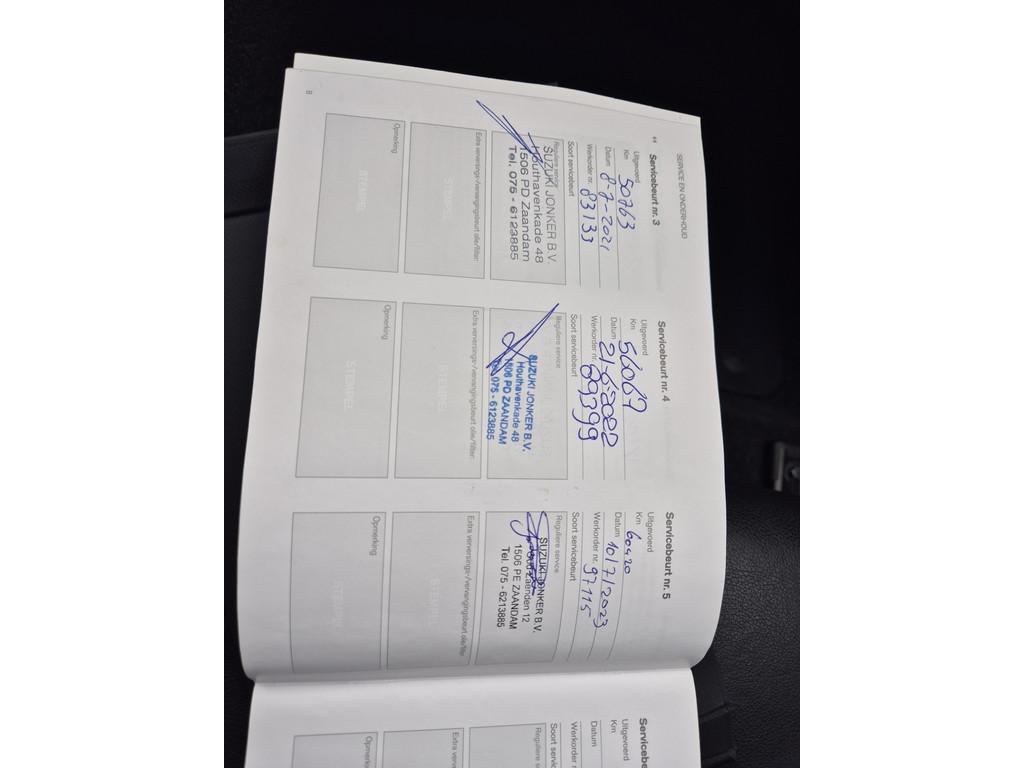 SERVICE EN ONDERHOUD
Servicebeurt nr. 3
Uitgevoerd
Km 50763
Datum 8-7-2021
Werkorder nr. 83133
Soort servicebeurt
Reguliere service
SUZUKI JONKER B.V.
Houthavenkade 48
1506 PD Zaandam
Tel. 075 - 6123885
Extra verversings-/vervangingsbeurt olie/filter:
STEMPEL
Opmerking
STEMPEL
8
Servicebeurt nr. 4
Uitgevoerd
Km 56069
Datum 21-6-2022
Werkorder nr. 89399
Soort servicebeurt
Reguliere service
SUZUKI JONKER B.V.
Houthavenkade 48
1506 PD ZAANDAM
Tel. 075 - 6123885
Extra verversings-/vervangingsbeurt olie/filter:
STEMPEL
Opmerking
STEMPEL
Servicebeurt nr. 5
Uitgevoerd
Km 60420
Datum 10/7/2023
Werkorder nr. 97115
Soort servicebeurt
Reguliere service
SUZUKI JONKER B.V.
12
1506 PE ZAANDAM
Tel. 075 - 6213885
Extra verversings-/vervangingsbeurt olie/filter
STEMPEL
Opmerking
STEMPEL
Servicebe
Uitgevoerd
Km
Datum
Werkorder n
Soort servic
Reguliere
Extra ve
Opme